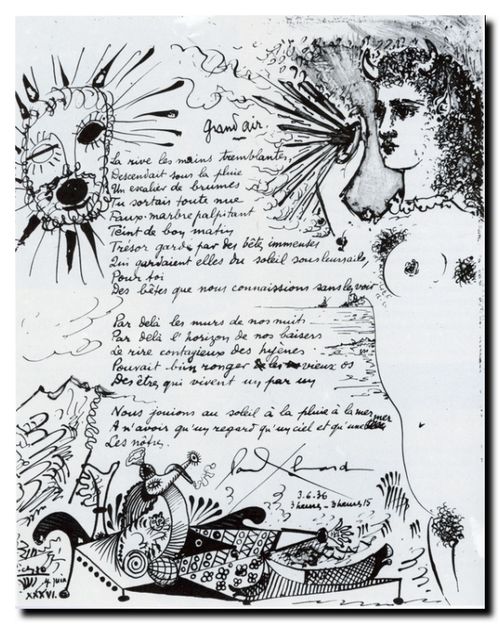 Grand air.
La rive les mains tremblantes,
Descendait sous la pluie
Un escalier de brumes
Tu sortais toute nue
Faux marbre palpitant
Teint de bon matin
Trésor gardé par des bêtes immenses
Qui gardaient elles du soleil sous leurs ailes
Pour toi
Des bêtes que nous connaissions sans les voir
Par delà les murs de nos nuits
Par delà l'horizon de nos baisers
Le rire contagieux des hyènes
Pouvait bien ronger les vieux os
Des êtres qui vivent un par un
Nous jouions au soleil à la pluie à la mer
A n'avoir qu'un regard qu'un ciel et qu'une mer
Les nôtres.
Paul Eluard
3.6.36
3 heures - 3 heures 15
4 juin
XXXVI.